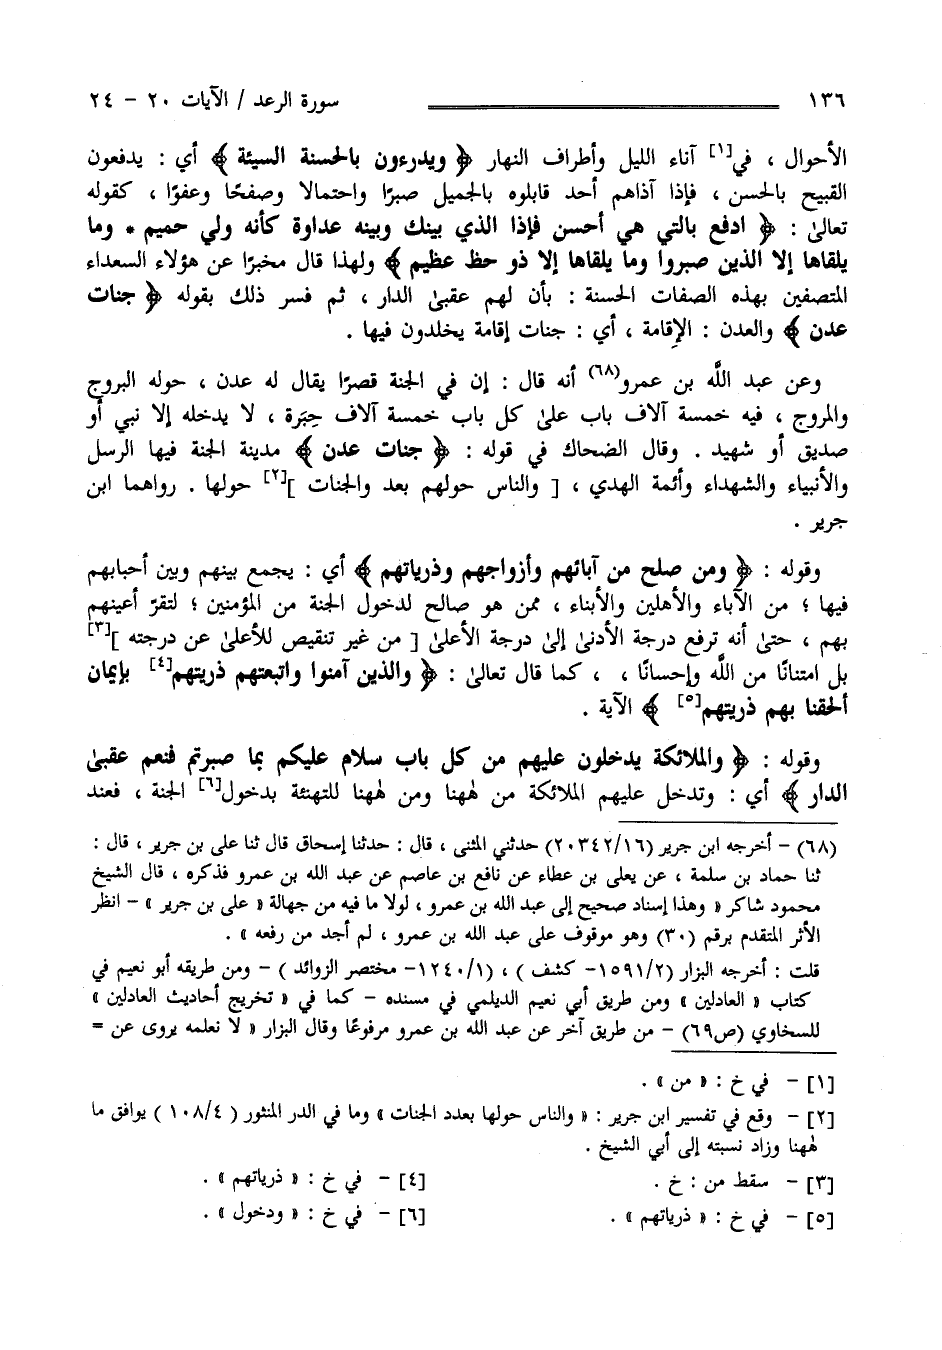 ١٣٦ سورة الرعد / الآيات ٢٠ - ٢٤
الأحوال ، في[١] آناء الليل وأطراف النهار ﴿ ويدرءون بالحسنة السيئة ﴾ أي : يدفعون
القبيح بالحسن ، فإذا آذاهم أحد قابلوه بالجميل صبرًا واحتمالا وصفحًا وعفوًا ، كقوله
تعالىٰ : ﴿ ادفع بالتي هي أحسن فإذا الذي بينك وبينه عداوة كأنه ولي حميم * وما
يلقاها إلا الذين صبروا وما يلقاها إلا ذو حظ عظيم ﴾ ولهذا قال مخبرًا عن هؤلاء السعداء
المتصفين بهذه الصفات الحسنة : بأن لهم عقبىٰ الدار ، ثم فسر ذلك بقوله ﴿ جنات
عدن ﴾ والعدن : الإقامة ، أي : جنات إقامة يخلدون فيها .
وعن عبد اللَّه بن عمرو(٦٨) أنه قال : إن في الجنة قصرًا يقال له عدن ، حوله البروج
والمروج ، فيه خمسة آلاف باب علىٰ كل باب خمسة آلاف حِبَرة ، لا يدخله إلا نبي أو
صديق أو شهيد . وقال الضحاك في قوله : ﴿ جنات عدن ﴾ مدينة الجنة فيها الرسل
والأنبياء والشهداء وأئمة الهدي ، [ والناس حولهم بعد والجنات ][٢] حولها . رواهما ابن
جرير .
وقوله : ﴿ ومن صلح من آبائهم وأزواجهم وذرياتهم ﴾ أي : يجمع بينهم وبين أحبابهم
فيها ؛ من الآباء والأهلين والأبناء ، ممن هو صالح لدخول الجنة من المؤمنين ؛ لتقرّ أعينهم
بهم ، حتىٰ أنه ترفع درجة الأدنىٰ إلىٰ درجة الأعلىٰ [ من غير تنقيص للأعلىٰ عن درجته ][٣]
بل امتنانًا من اللَّه وإحسانًا ، ، كما قال تعالىٰ : ﴿ والذين آمنوا واتبعتهم ذريتهم[٤] بإيمان
ألحقنا بهم ذريتهم[٥] ﴾ الآية .
وقوله : ﴿ والملائكة يدخلون عليهم من كل باب سلام عليكم بما صبرتم فنعم عقبىٰ
الدار ﴾ أي : وتدخل عليهم الملائكة من هٰهنا ومن هٰهنا للتهنئة بدخول[٦] الجنة ، فعند
(٦٨) - أخرجه ابن جرير (٢٠٣٤٢/١٦) حدثني المثنى ، قال : حدثنا إسحاق قال ثنا على بن جرير ، قال :
ثنا حماد بن سلمة ، عن يعلى بن عطاء عن نافع بن عاصم عن عبد الله بن عمرو فذكره ، قال الشيخ
محمود شاكر « وهذا إسناد صحيح إلى عبد الله بن عمرو ، لولا ما فيه من جهالة « على بن جرير » - انظر
الأثر المتقدم برقم (٣٠) وهو موقوف على عبد الله بن عمرو ، لم أجد من رفعه » .
قلت : أخرجه البزار (١٥٩١/٢- كشف ) ، (١٢٤٠/١- مختصر الزوائد ) - ومن طريقه أبو نعيم في
كتاب « العادلين » ومن طريق أبي نعيم الديلمي في مسنده - كما في « تخريج أحاديث العادلين »
للسخاوي (ص٦٩) - من طريق آخر عن عبد الله بن عمرو مرفوعًا وقال البزار « لا نعلمه يروى عن =
[١] - في خ : « من » .
[٢] - وقع في تفسير ابن جرير : « والناس حولها بعدد الجنات » وما في الدر المنثور ( ١٠٨/٤ ) يوافق ما
هٰهنا وزاد نسبته إلى أبي الشيخ .
[٣] - سقط من : خ . [٤] - في خ : « ذرياتهم » .
[٥] - في خ : « ذرياتهم » . [٦] - في خ : « ودخول » .